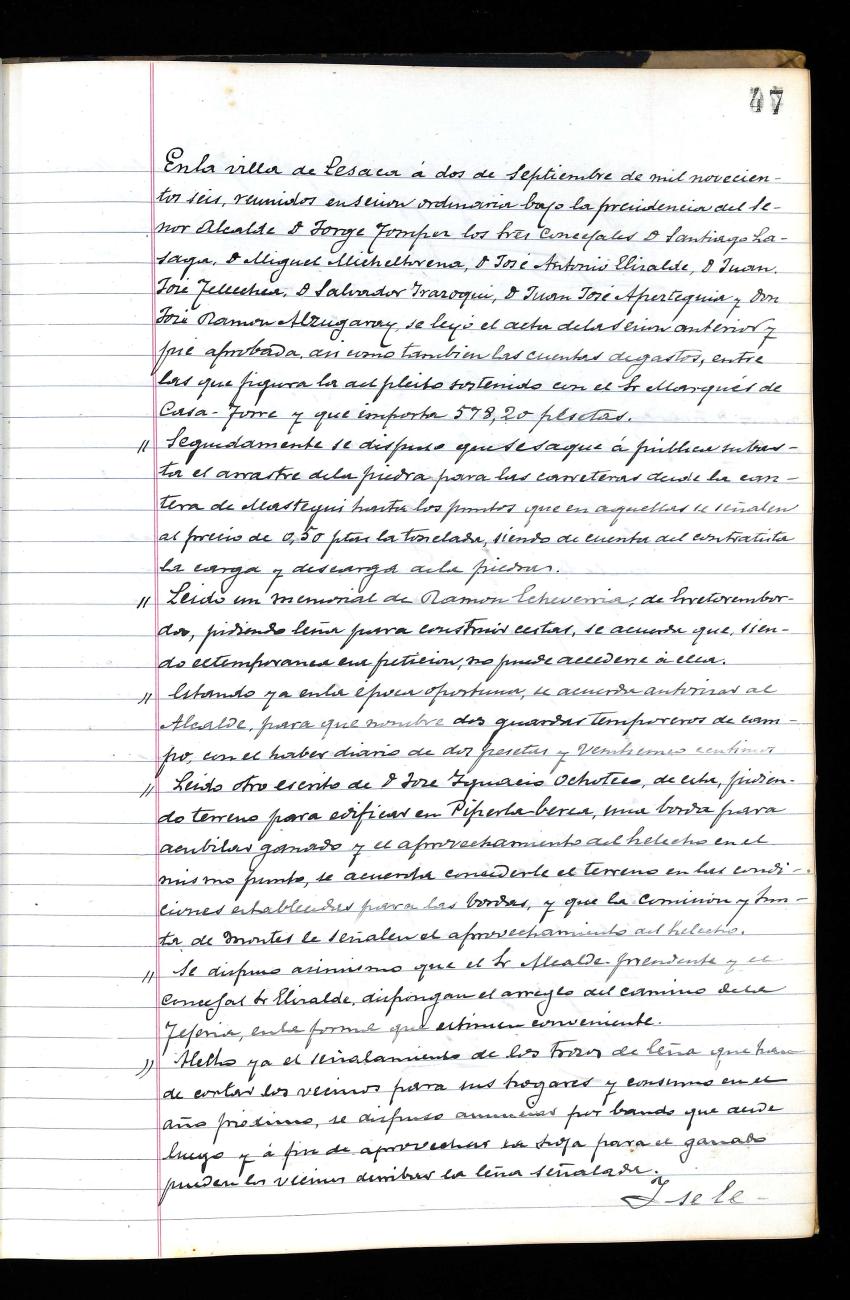 47
En la villa de Lesaca á dos de Septiembre de mil novecien-
tos seis, reunidos en sesion ordinaria bajo la presidencia del Se-
ñor Alcalde D Jorge Tomper los Sres Concejales D Santiago La-
saga, D Miguel Michelhorena, D José Antonio Elizalde, D Juan
José Tellechea, D Salvador Irazoqui, D Juan José Apezteguia y Don
José Ramon Alzugaray, se leyó el acta de la sesion anterior y
fué aprobada, asi como tambien las cuentas de gastos, entre
las que figura la del pleito sostenido con el Sr Marqués de
Casa-Torre y que importa 578,20 pesetas.
" Seguidamente se dispuso que se saque á pública subas-
ta el arrastre de la piedra para las carreteras desde la can-
tera de Mastegui hasta los puntos que en aquellas se señalen
al precio de 0,50 ptas la tonelada, siendo de cuenta del contratista
la carga y descarga de la piedra.
" Leido un memorial de Ramon Echeverria, de
pidiendo leña para construir cestas, se acuerda que, sien-
do extemporanea su peticion, no puede accederse á ella.
" Estando ya en la época oportuna, se acuerda autorizar al
Alcalde, para que nombre dos guardas temporeros de cam-
po, con el haber diario de dos pesetas y veinticinco centimos
" Leido otro escrito de D José Ygnacio Ochoteco, de esta, pidien-
do terreno para edificar en Piperla berea, una borda para
acubilar ganado y el aprovechamiento del helecho en el
mismo punto, se acuerda concederle el terreno en las condi-
ciones establecidas para las bordas, y que la Comision y Jun-
ta de Montes le señalen el aprovechamiento del helecho.
" Se dispuso asimismo que el Sr Alcalde-Presidente y el
Concejal Sr Elizalde, dispongan el arreglo del camino de la
Tejeria, en la forma que estimen conveniente.
" Hecho ya el señalamiento de los trozos de leña que han
de cortar los vecinos para sus hogares y consumo en el
año próximo, se dispuso anunciar por bando que desde
luego y á fin de aprovechar la hoja para el ganado
pueden los vecinos derribar la leña señalada.
Y se le-